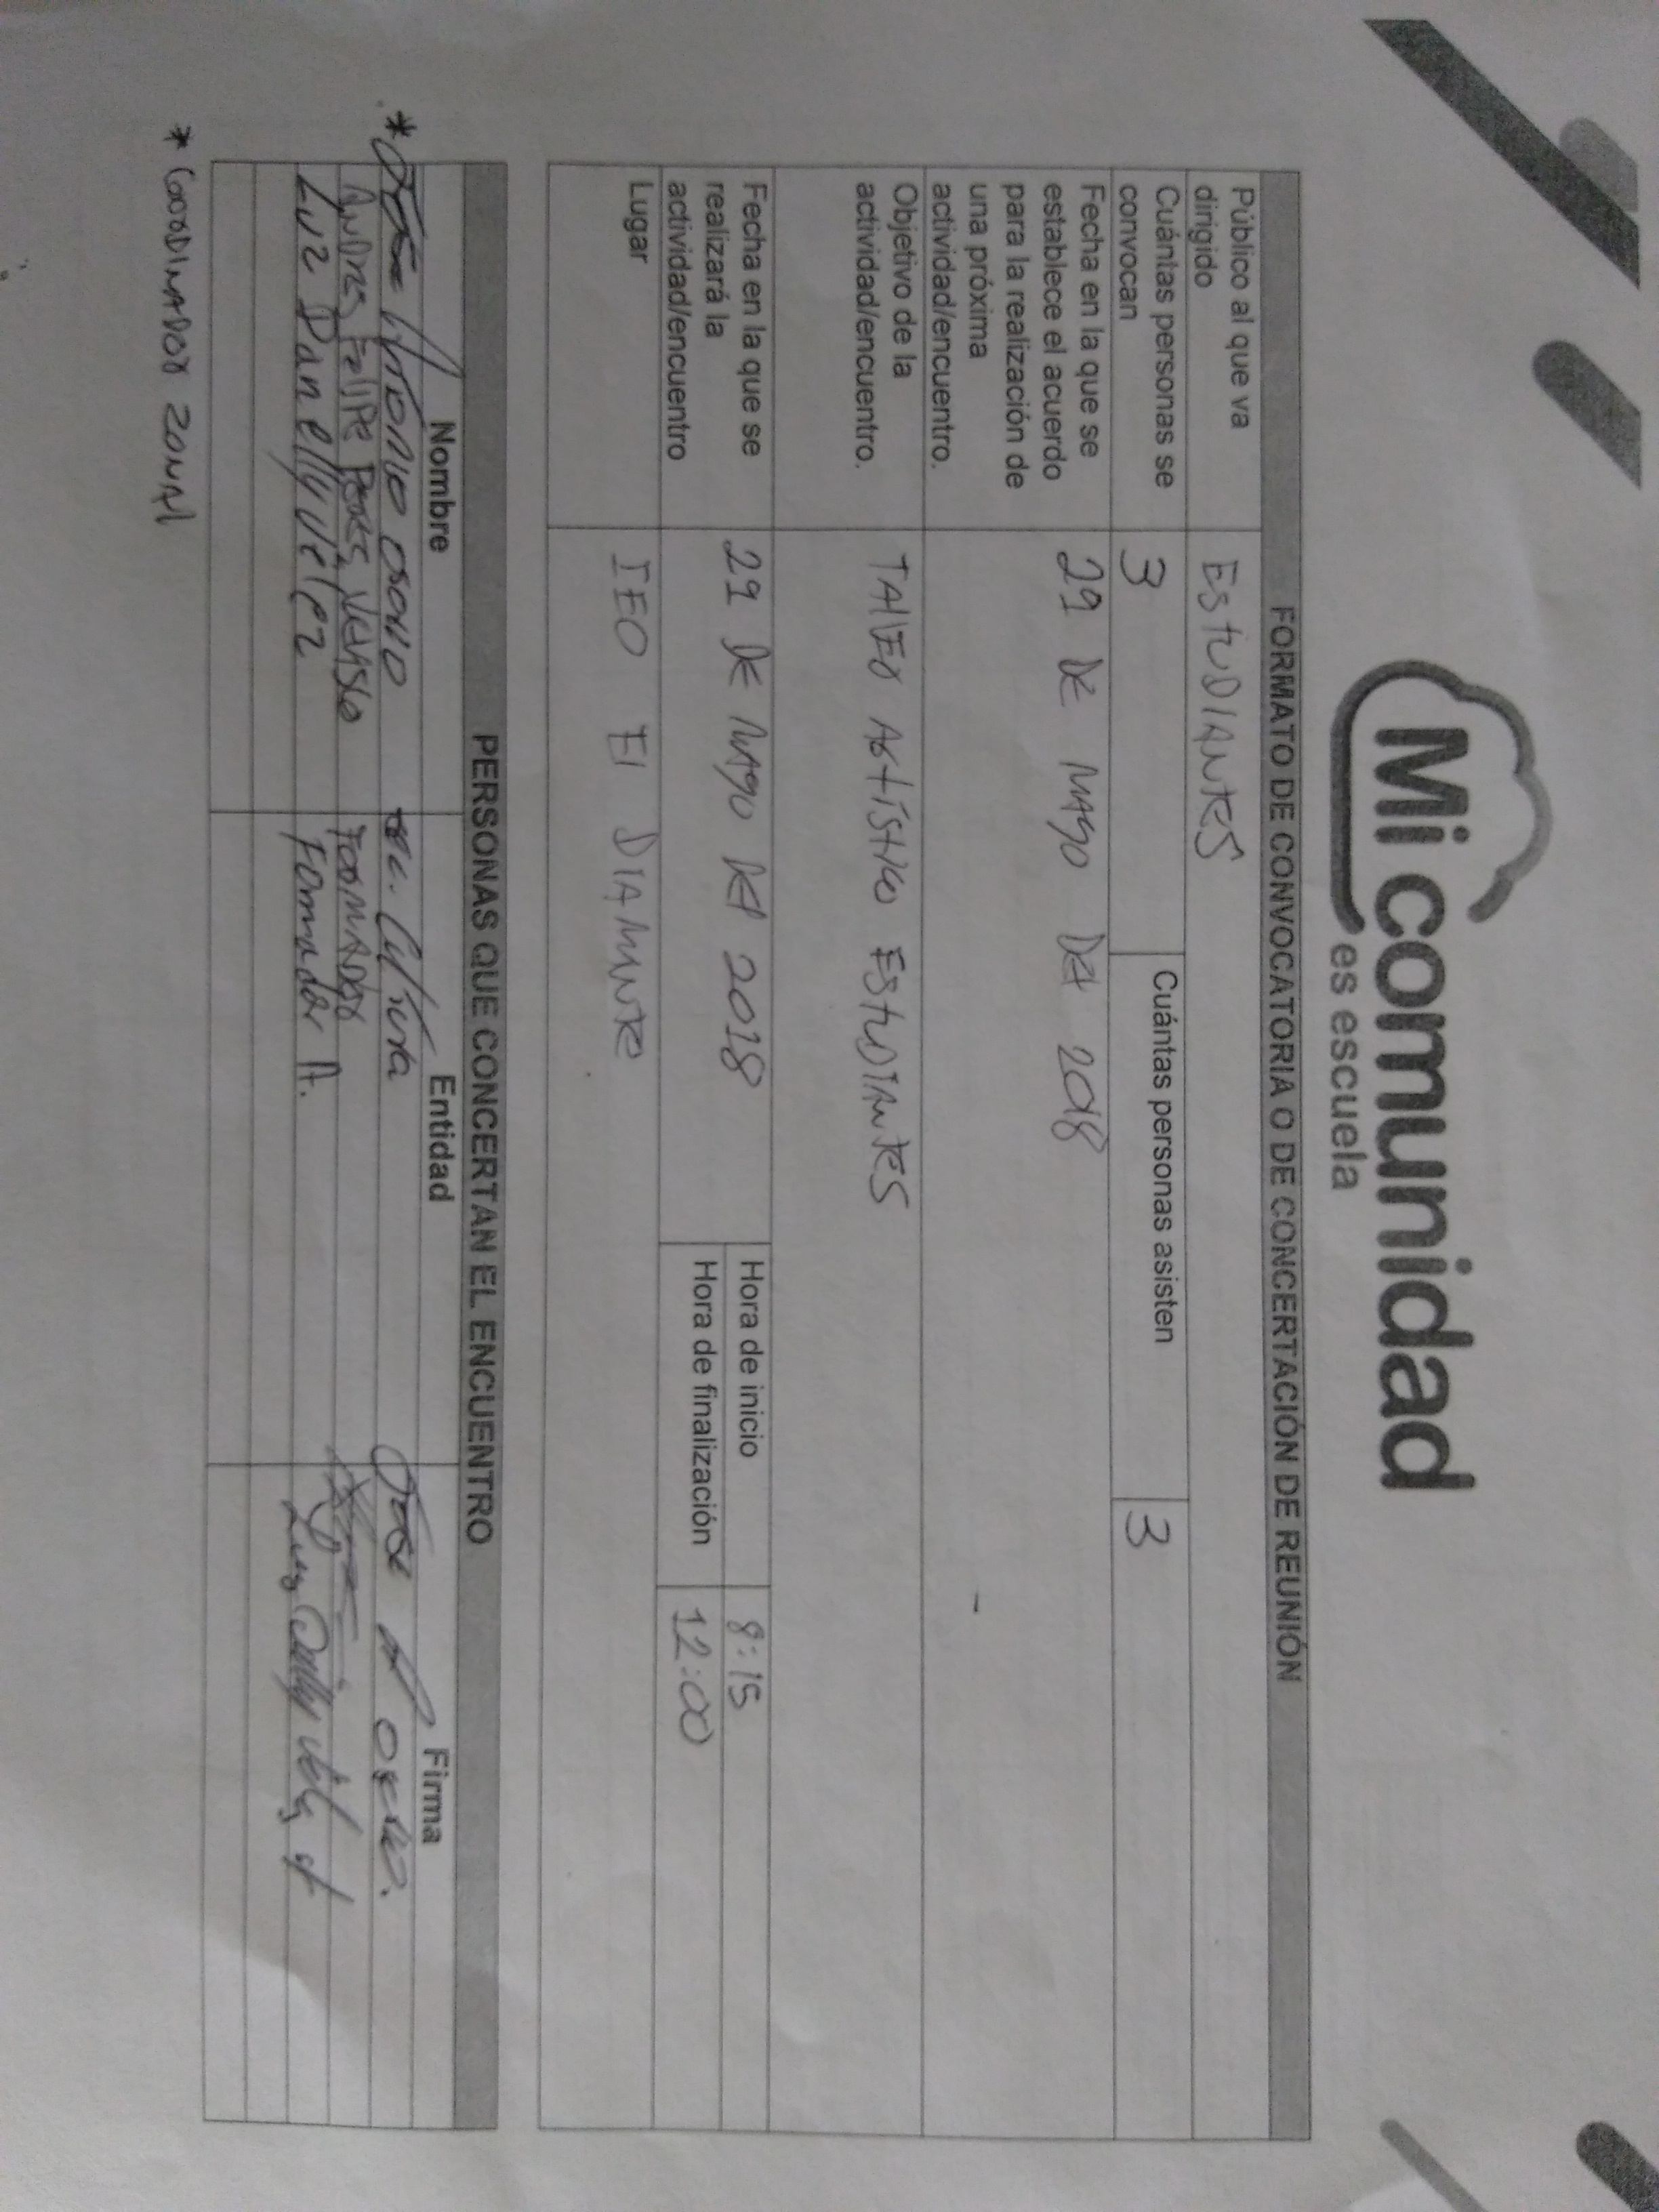 Mi comunidad
es escuela
FORMATO DE CONVOCATORIA O DE CONCERTACIÓN DE REUNIÓN
Público al que va dirigido ESTUDIANTES
Cuántas personas se convocan 3 Cuántas personas asisten 3
Fecha en la que se establece el acuerdo para la realización de una próxima actividad/encuentro. 29 DE MAYO DEL 2018
Objetivo de la actividad/encuentro. TALLER ARTÍSTICO ESTUDIANTES
Fecha en la que se realizará la actividad/encuentro 29 DE MAYO DEL 2018 Hora de inicio 8:15
Hora de finalización 12:00
Lugar IEO El DIAMANTE
PERSONAS QUE CONCERTAN EL ENCUENTRO
Nombre Entidad Firma
* Jose Antonio Osorio Sec. Cultura Jose A Osorio.
ANDRES FELIPE PEREZ VELASCO FORMADOR
Luz Danelly Velez Formador A. Luz
* COORDINADOR ZONAL